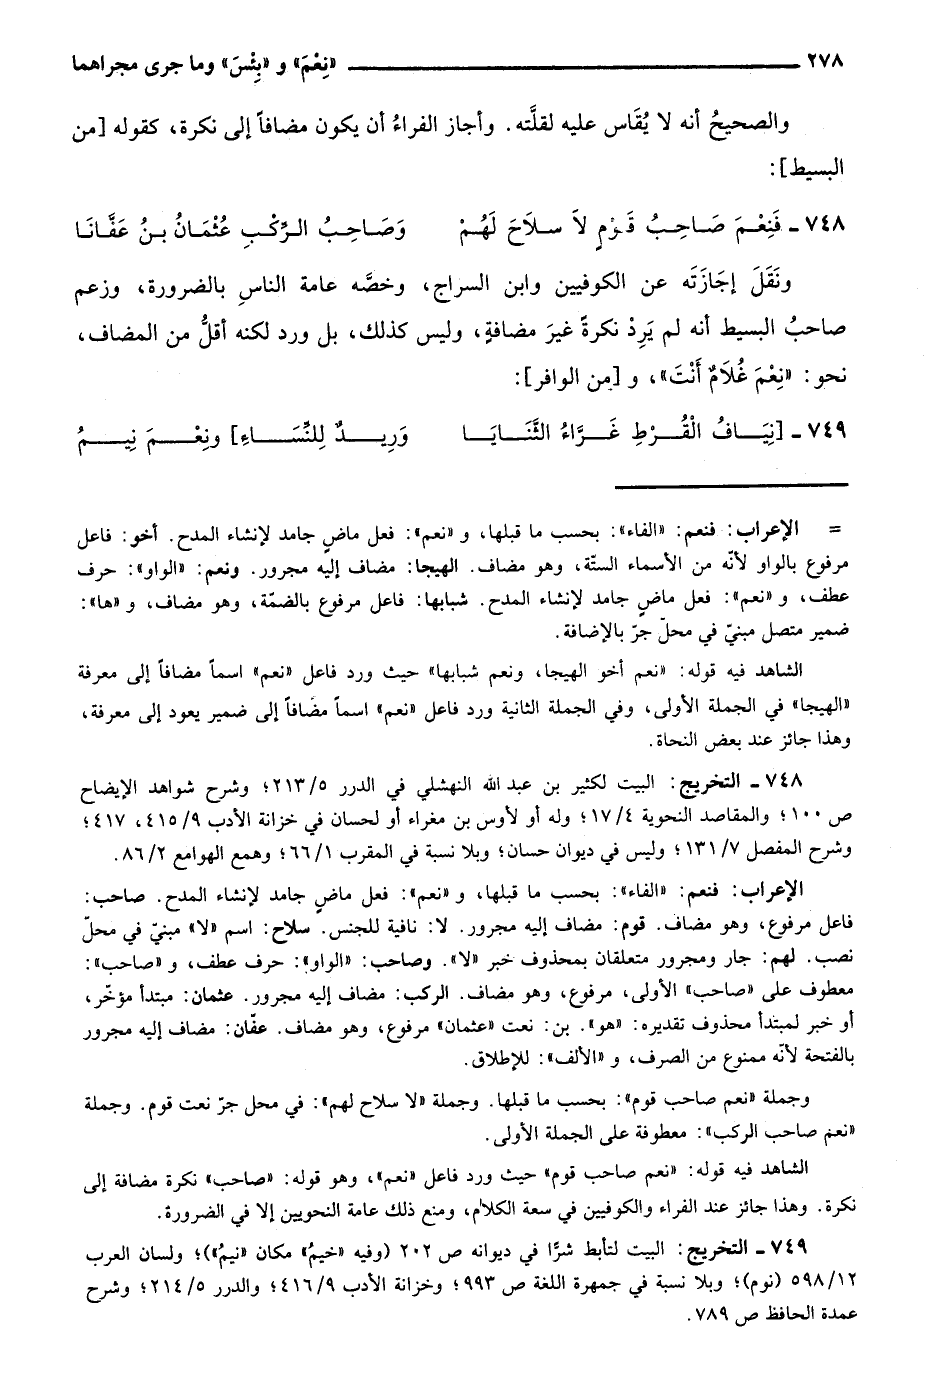 ٢٧٨ ــــــــــــــــــــــــــــــــــــ «نِعْمَ» و «بِئْسَ» وما جرى مجراهما
والصحيحُ أنه لا يُقَاس عليه لقلَّته. وأجاز الفراءُ أن يكون مضافاً إلى نكرة، كقوله [من
البسيط]:
٧٤٨ ـ فَنِعْمَ صَاحِبُ قَوْمٍ لاَ سلاَحَ لَهُمْ وَصَاحِبُ الرَّكْبِ عُثْمَانُ بنُ عَفَّانَا
ونَقَلَ إجَازَتَه عن الكوفيين وابن السراج، وخصَّه عامة الناسِ بالضرورة، وزعم
صاحبُ البسيط أنه لم يَرِدْ نكرةً غيرَ مضافةٍ، وليس كذلك، بل ورد لكنه أقلُّ من المضاف،
نحو: «نِعْمَ غُلاَمٌ أَنْتَ»، و [من الوافر]:
٧٤٩ ـ [نِيَافُ الْقُرْطِ غَرَّاءُ الثَّنَايَا وَرِيدٌ لِلنِّسَاءِ] ونِعْمَ نِيمُ
= الإعراب: فنعم: «الفاء»: بحسب ما قبلها، و «نعم»: فعل ماضٍ جامد لإنشاء المدح. أخو: فاعل
مرفوع بالواو لأنّه من الأسماء الستّة، وهو مضاف. الهيجا: مضاف إليه مجرور. ونعم: «الواو»: حرف
عطف، و «نعم»: فعل ماضٍ جامد لإنشاء المدح. شبابها: فاعل مرفوع بالضمّة، وهو مضاف، و «ها»:
ضمير متصل مبنيّ في محلّ جرّ بالإضافة.
الشاهد فيه قوله: «نعم أخو الهيجا، ونعم شبابها» حيث ورد فاعل «نعم» اسماً مضافاً إلى معرفة
«الهيجا» في الجملة الأولى، وفي الجملة الثانية ورد فاعل «نعم» اسماً مضافاً إلى ضمير يعود إلى معرفة،
وهذا جائز عند بعض النحاة.
٧٤٨ ـ التخريج: البيت لكثير بن عبد الله النهشلي في الدرر ٢١٣/٥؛ وشرح شواهد الإيضاح
ص ١٠٠؛ والمقاصد النحوية ١٧/٤؛ وله أو لأوس بن مغراء أو لحسان في خزانة الأدب ٤١٥/٩، ٤١٧؛
وشرح المفصل ١٣١/٧؛ وليس في ديوان حسان؛ وبلا نسبة في المقرب ٦٦/١؛ وهمع الهوامع ٨٦/٢.
الإعراب: فنعم: «الفاء»: بحسب ما قبلها، و «نعم»: فعل ماضٍ جامد لإنشاء المدح. صاحب:
فاعل مرفوع، وهو مضاف. قوم: مضاف إليه مجرور. لا: نافية للجنس. سلاح: اسم «لا» مبنيّ في محلّ
نصب. لهم: جار ومجرور متعلقان بمحذوف خبر «لا». وصاحب: «الواو»: حرف عطف، و «صاحب»:
معطوف على «صاحب» الأولى، مرفوع، وهو مضاف. الركب: مضاف إليه مجرور. عثمان: مبتدأ مؤخّر،
أو خبر لمبتدأ محذوف تقديره: «هو». بن: نعت «عثمان» مرفوع، وهو مضاف. عفّان: مضاف إليه مجرور
بالفتحة لأنّه ممنوع من الصرف، و «الألف»: للإطلاق.
وجملة «نعم صاحب قوم»: بحسب ما قبلها. وجملة «لا سلاح لهم»: في محل جرّ نعت قوم. وجملة
«نعم صاحب الركب»: معطوفة على الجملة الأولى.
الشاهد فيه قوله: «نعم صاحب قوم» حيث ورد فاعل «نعم»، وهو قوله: «صاحب» نكرة مضافة إلى
نكرة. وهذا جائز عند الفراء والكوفيين في سعة الكلام، ومنع ذلك عامة النحويين إلا في الضرورة.
٧٤٩ ـ التخريج: البيت لتأبط شرًّا في ديوانه ص ٢٠٢ (وفيه «خيمُ» مكان «نيمُ»)؛ ولسان العرب
٥٩٨/١٢ (نوم)؛ وبلا نسبة في جمهرة اللغة ص ٩٩٣؛ وخزانة الأدب ٤١٦/٩؛ والدرر ٢١٤/٥؛ وشرح
عمدة الحافظ ص ٧٨٩.